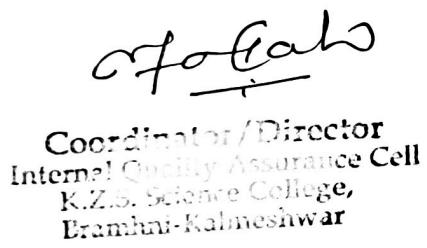 Coordinator/Director
Internal Quality Assurance Cell
K.Z.S. Science College,
Bramhni-Kalmeshwar